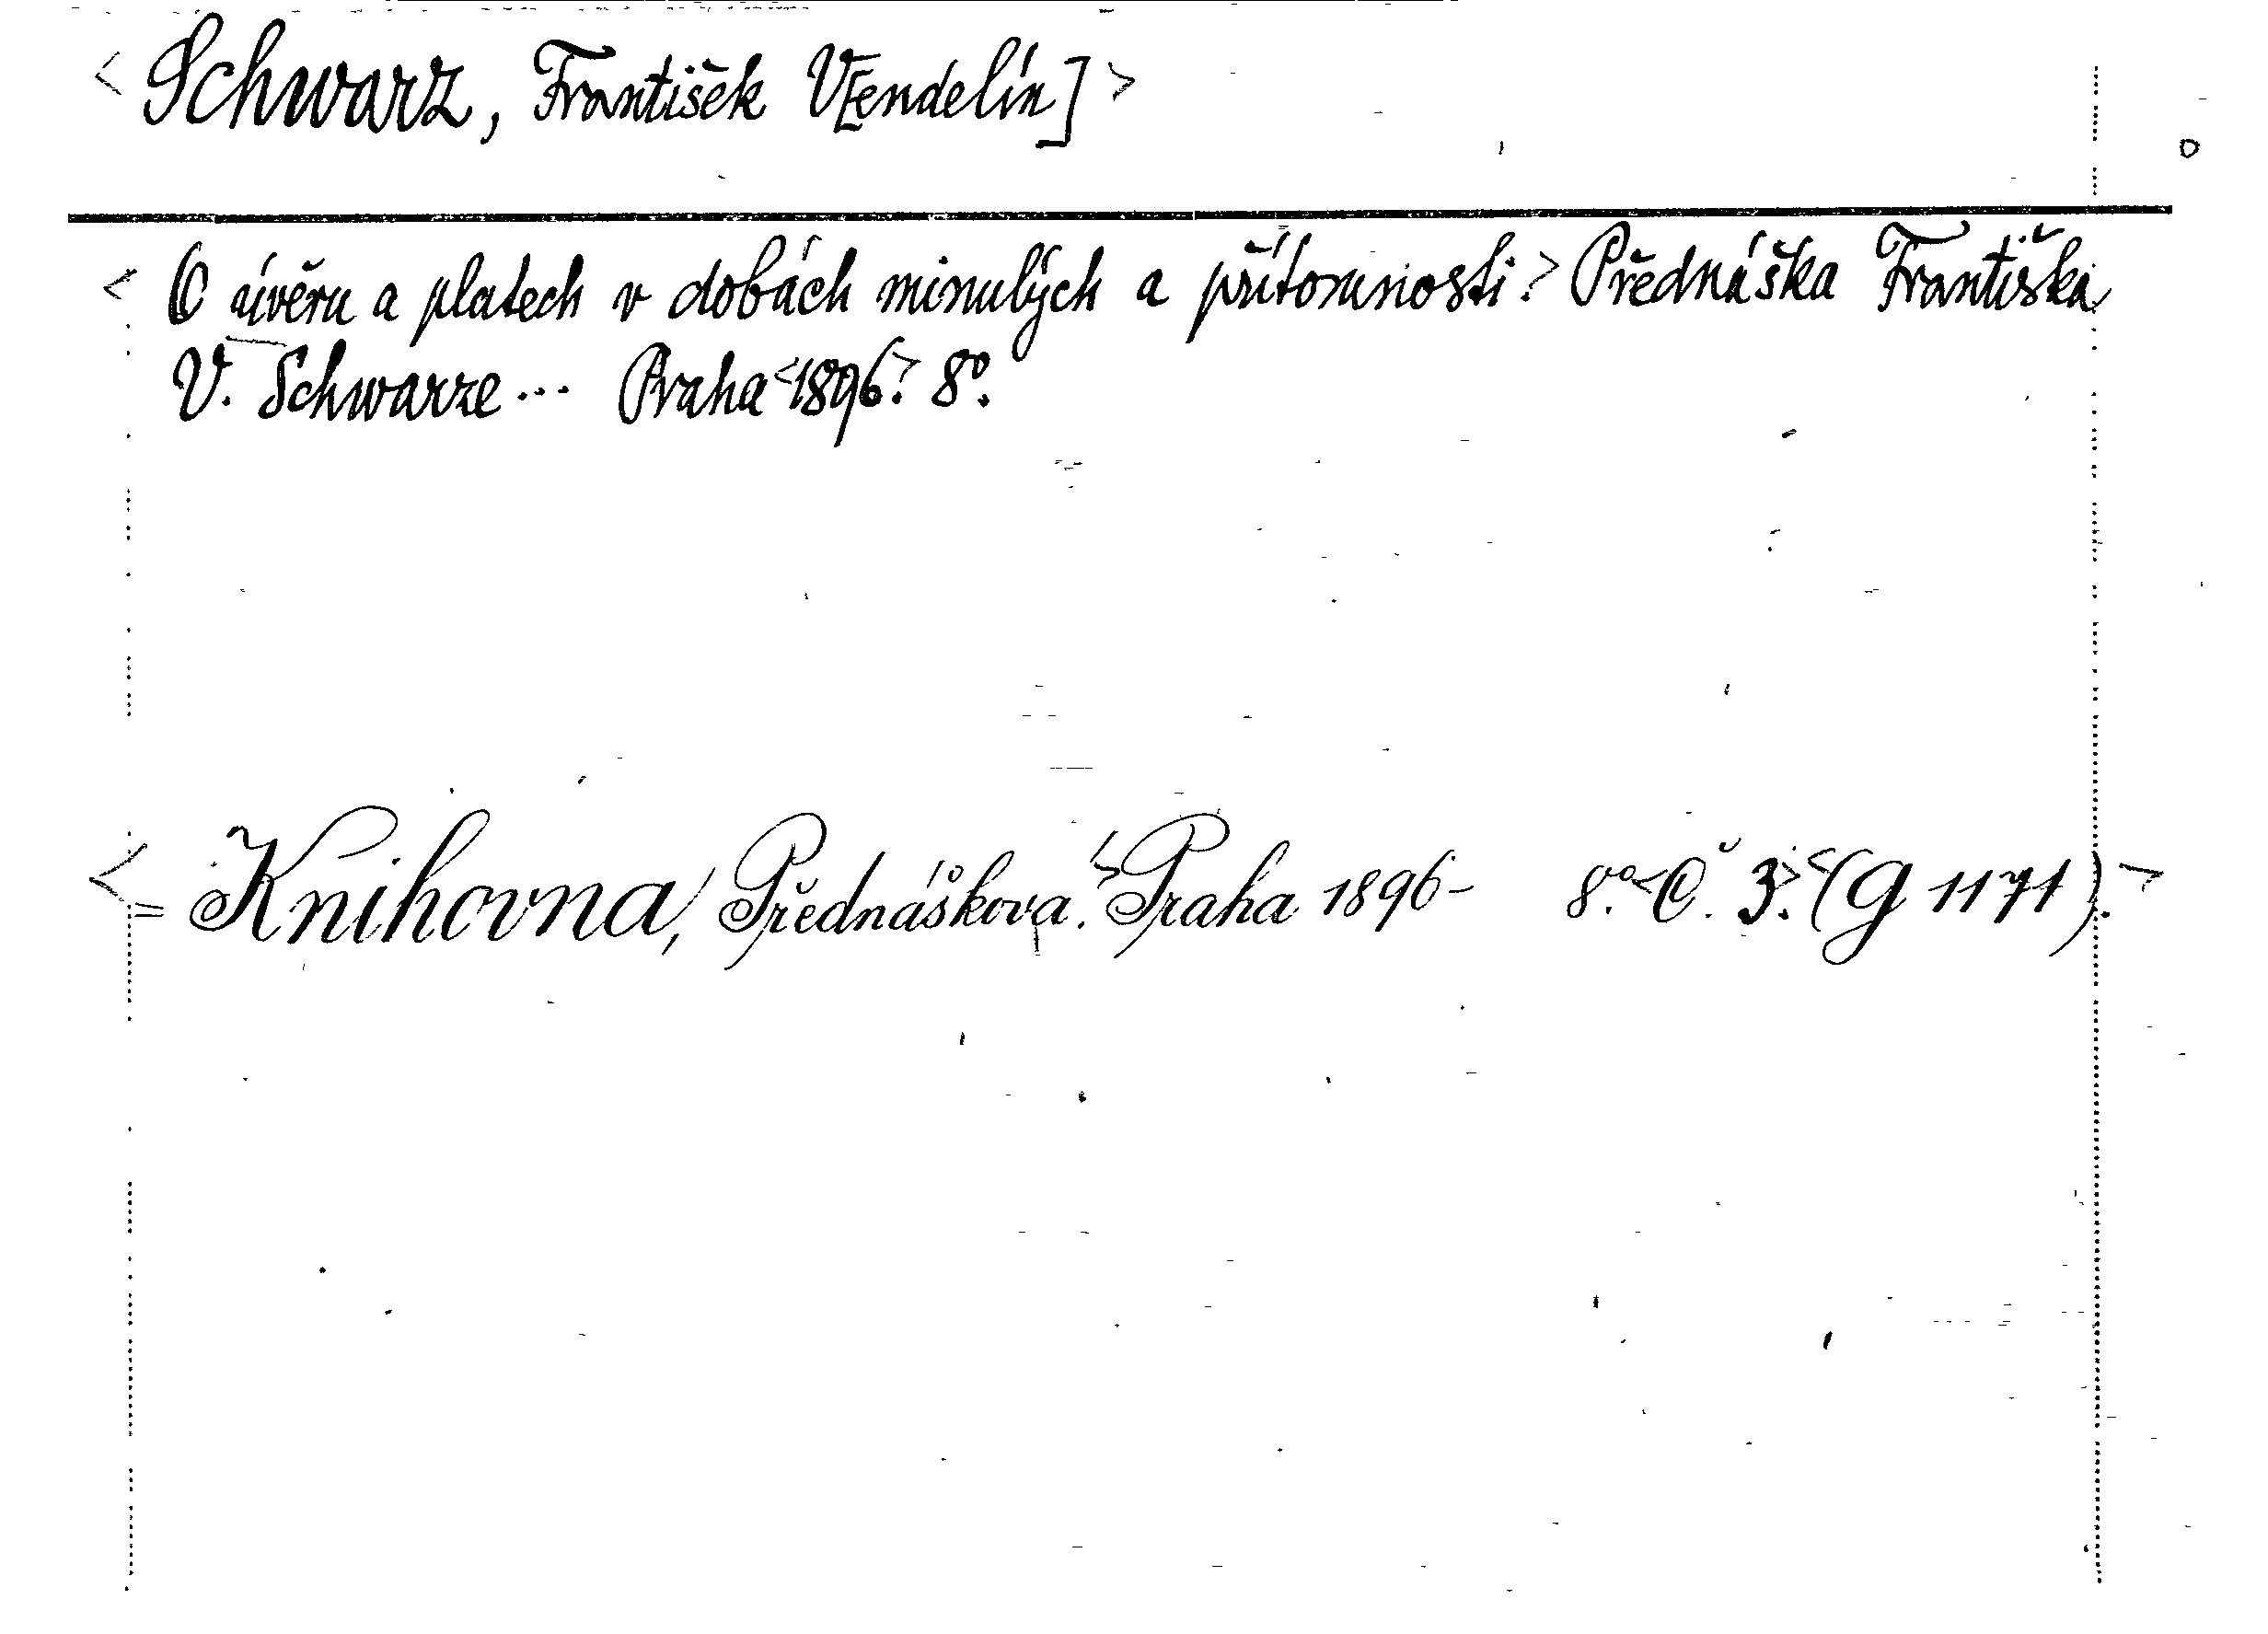 <Schwarz, František V[endelín]>
<O úvěru a platech v dobách minulých a přítomnosti.> Přednáška Františka
V. Schwarze ... Praha <1896.> 8º.
<= Knihovna, Přednášková.> Praha 1896- 8º. <Č. 3.> <(G 1171).>